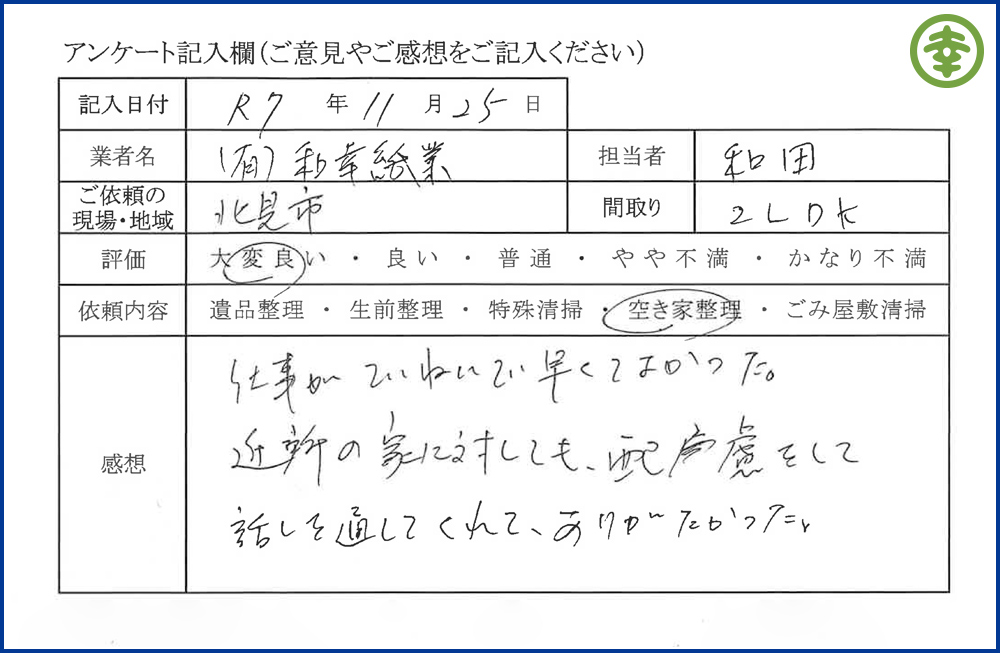 幸
アンケート記入欄(ご意見やご感想をご記入ください)
記入日付 R7 年 11 月 25 日
業者名 (有)和幸紙業 担当者 和田
ご依頼の現場・地域 北見市 間取り 2LDK
評価 大変良い ・ 良い ・ 普通 ・ やや不満 ・ かなり不満
依頼内容 遺品整理 ・ 生前整理 ・ 特殊清掃 ・ 空き家整理 ・ ごみ屋敷清掃
感想
仕事がていねいで早くてよかった。
近所の家に対しても、配慮をして
話しを通してくれて、ありがたかった。